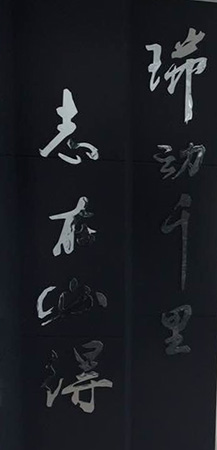 瑞动千里
志在必得